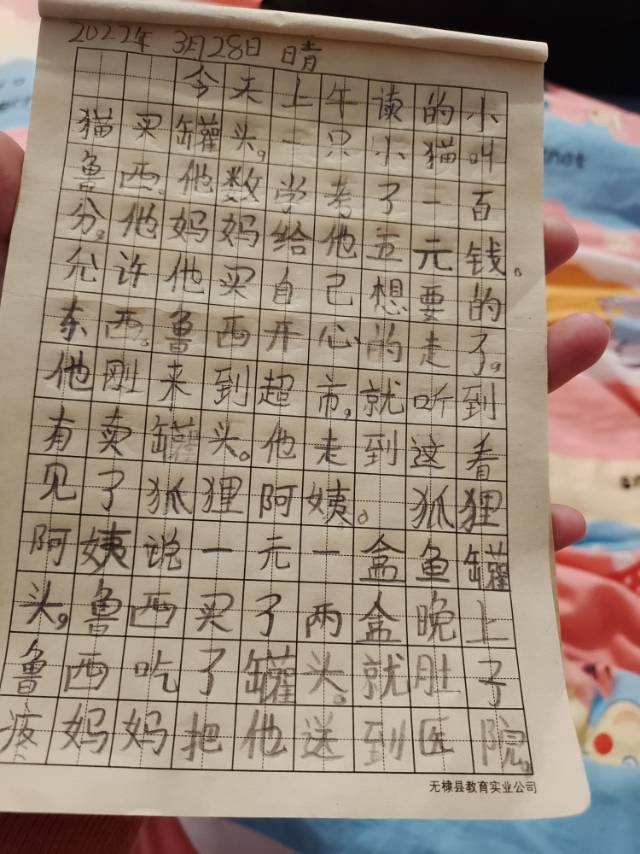 2022年 3月28日 晴
今天上午读的小
猫买罐头。一只小猫叫
鲁西。他数学考了一百
分。他妈妈给他五元钱。
允许他买自己想要的
东西。鲁西开心的走了。
他刚来到超市,就听到
有卖罐头。他走到这看
见了狐狸阿姨。狐狸
阿姨说一元一盒鱼罐
头。鲁西买了两盒晚上
鲁西吃了罐头。就肚子
疼妈妈把他送到医院。
无棣县教育实业公司